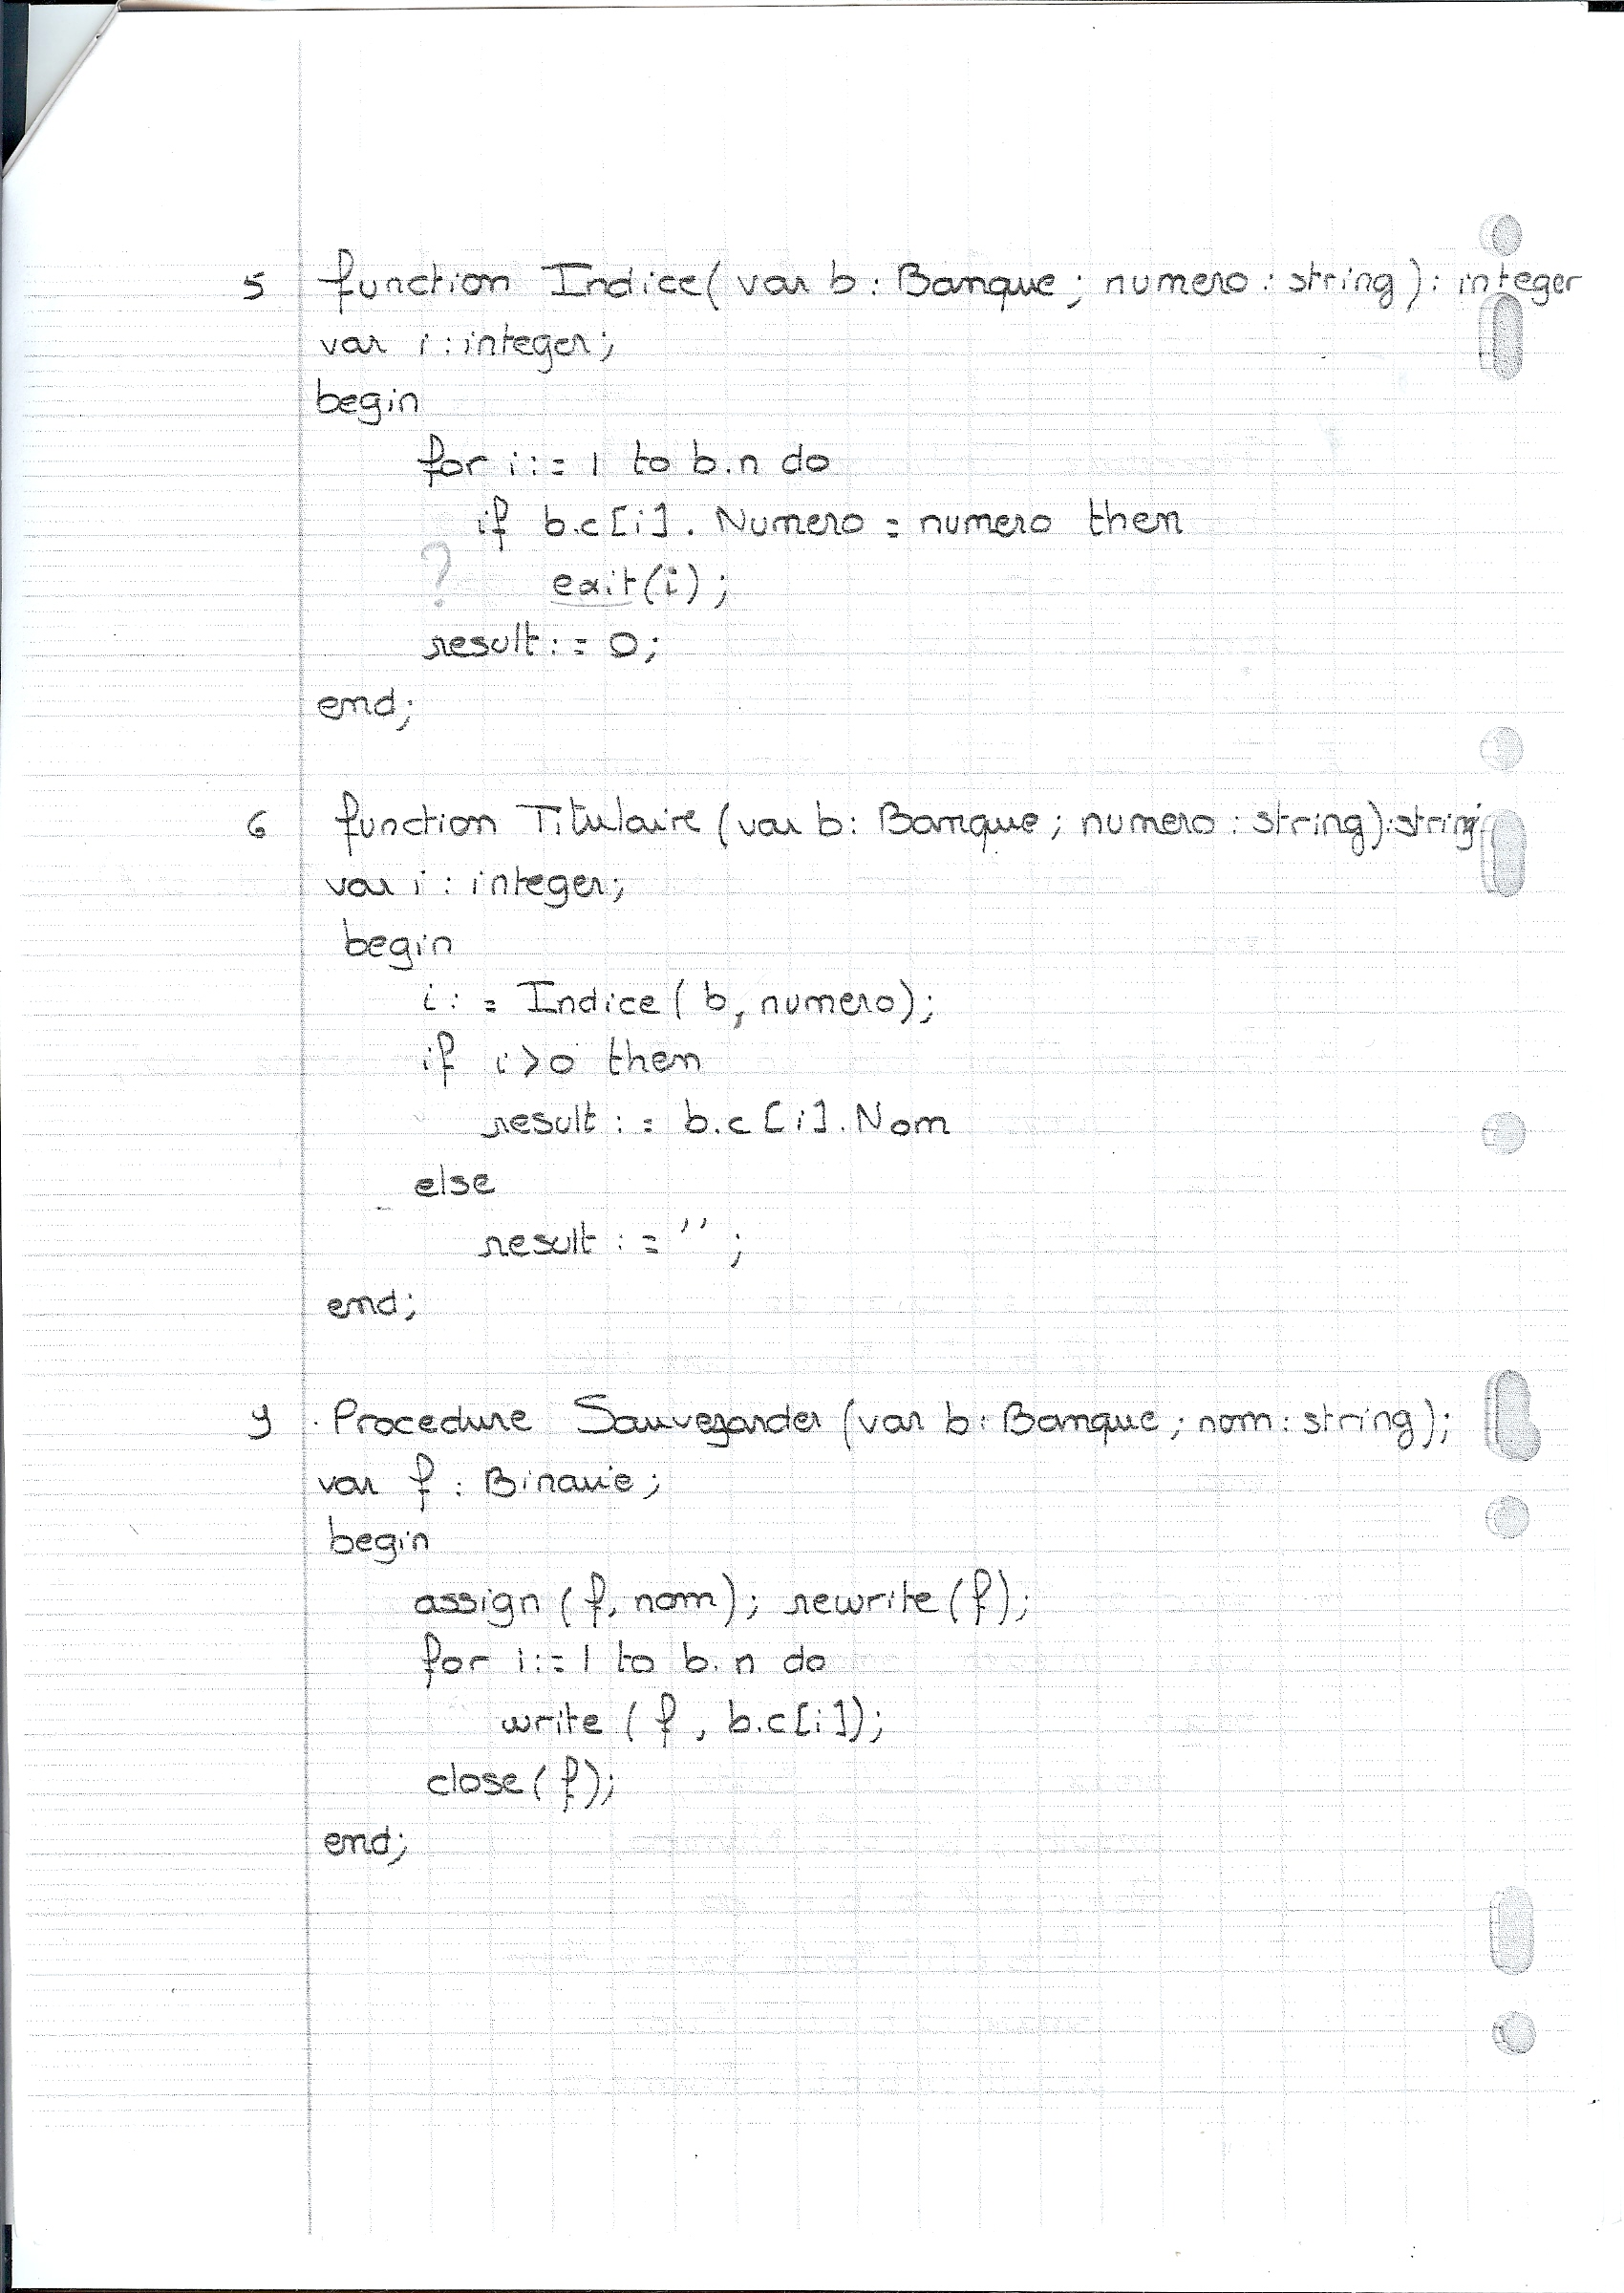 5 function Indice( var b : Banque ; numero : string ) : integer
var i : integer;
begin
for i := 1 to b.n do
if b.c[i]. Numero = numero then
? exit(i);
result := 0;
end;
6 function Titulaire (var b: Banque ; numero : string):string;
var i : integer;
begin
i := Indice( b, numero);
if i>0 then
result := b.c[i].Nom
else
result := '' ;
end;
9 Procedure Sauvegarder (var b: Banque ; nom : string);
var f : Binaire;
begin
assign (f, nom); rewrite(f);
for i:=1 to b.n do
write (f, b.c[i]);
close(f);
end;